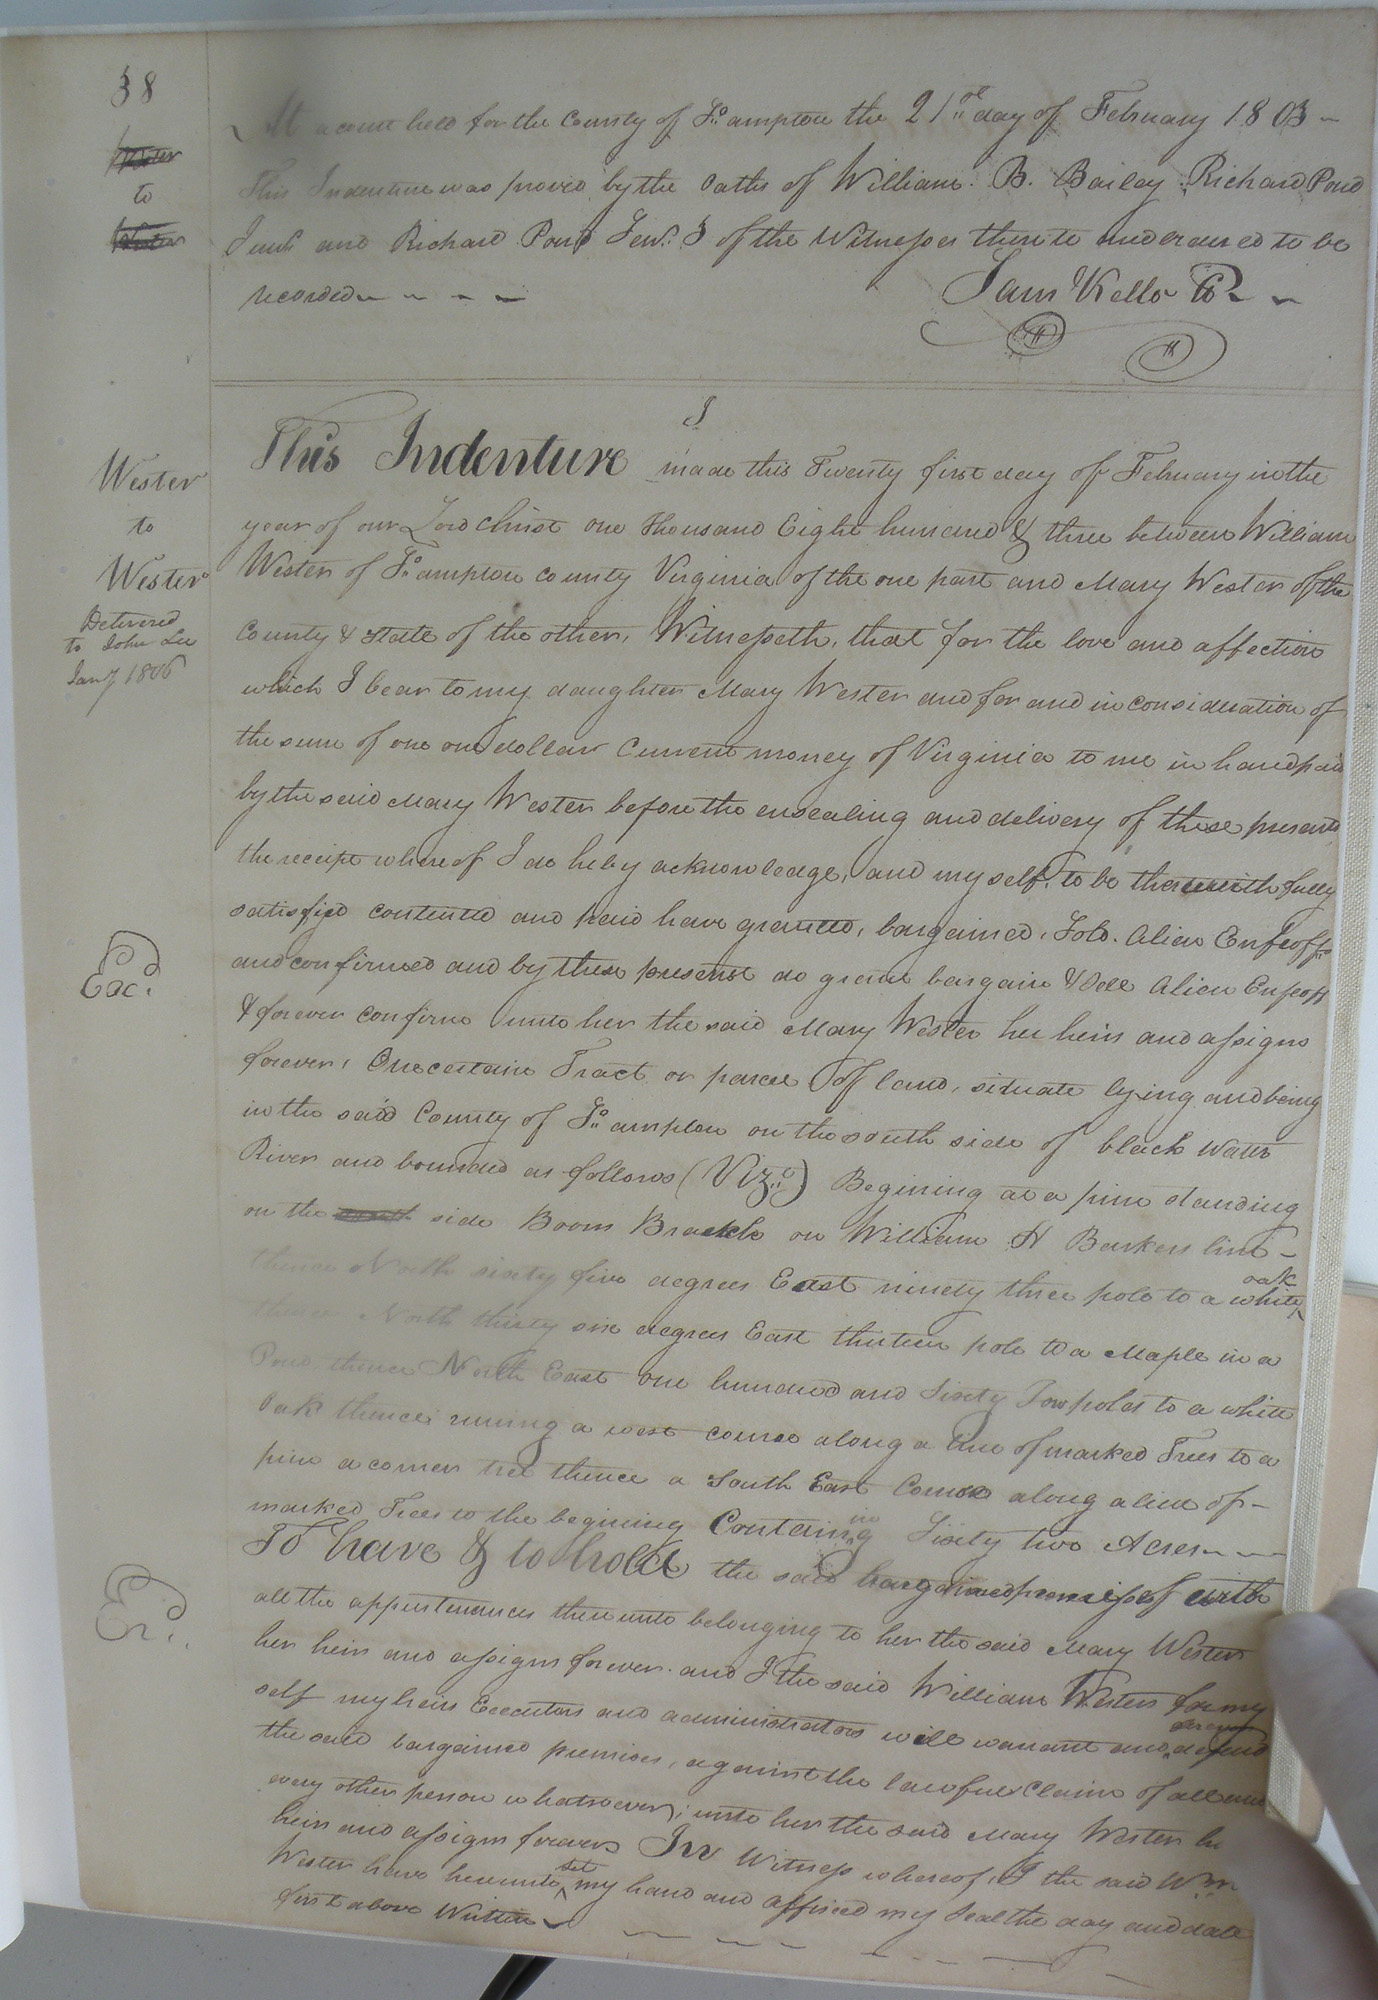 38
Wester
to
Wester
At a court held for the County of So.ampton the 21st day of February 1803 -
This Indenture was proved by the oaths of William. B. Bailey Richard Pond
Junr. and Richard Pond Senr. 3 of the Witnesses thereto and ordered to be
recorded - - - -
Sam Kello
This Indenture made this Twenty first day of February in the
year of our Lord Christ one thousand Eight hundred & three between William
Wester of So.ampton County Virginia of the one part and Mary Wester of the
County & State of the other, Witnesseth, that for the love and affection
which I bear to my daughter Mary Wester and for and in consideration of
the sum of one one dollar Current money of Virginia to me in hand paid
by the said Mary Wester before the ensealing and delivery of these presents
the receipt whereof I do heby acknowledge, and myself. to be therewith fully
satisfied contented and paid have granted, bargained, Sold. Alien Enfeoff
and confirmed and by these presenst do grant bargain & Sell Alien Enfeoff
& forever confirm unto her the said Mary Wester her heirs and assigns
forever, One certain Tract or parcel of land, situate lying and being
in the said County of So.ampton on the south side of black Water
River and bounded as follows (Viz.) Begining at a pine standing
on the side Boom Branch on William H Barkers line -
thence North sixty five degrees East ninety three pole to a white oak
thence North thirty six degrees East thirteen pole to a Maple in a
Pond thence North East one hundred and Sixty Tow poles to a white
Oak thence runing a west course along a line of marked Trees to a
pine a corner tree thence a South East Course along a line of -
marked Trees to the begining Containing Sixty two Acres - - -
To have & to hold the said bargained premises with
all the appurtenances thereunto belonging to her the said Mary Wester
her heirs and assigns forever. and I the said William Wester for my
self my heirs Executors and administrators will warrant and defend
the said bargained premises, against the lawful Claim of all and
every other person whatsoever, unto her the said Mary Wester her
heirs and assigns forever In Witness whereof, I the said Wm
Wester have hereunto set my hand and affixed my Seal the day and date
first above Written
Wester
to
Wester
Delivered
to John Lee
Jany 1806
Ex.
Ex.